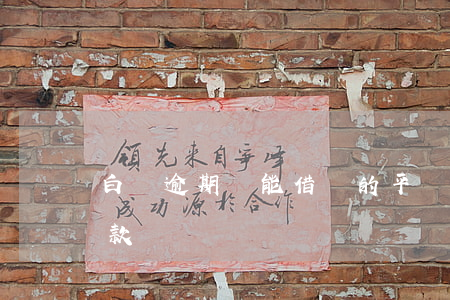 领先来自争峰
白 逾期 能借 的平
成功源於合作
款